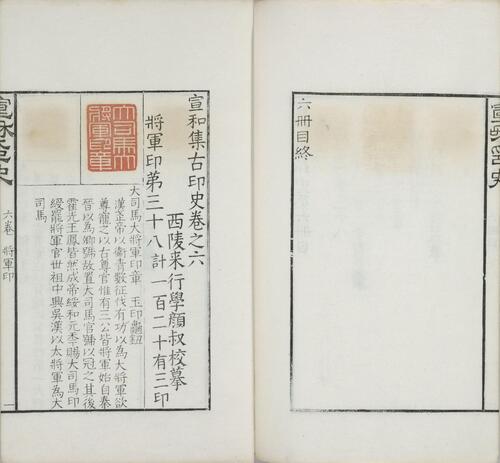 六冊目終
宣和集古印史卷之六
西陵来行學顏叔校摹
將軍印第三十八 計一百二十有三印
大司馬大將軍印章
大司馬大將軍印章 玉印龜鈕
漢武帝以衛青數征伐有功以為大將軍欲
尊寵之以古尊官惟有三公皆將軍始自秦
晉以為卿號故置大司馬官號以冠之其後
霍光王鳳皆然成帝綏和元年賜大司馬印
綬罷將軍官世祖中興吳漢以大將軍為大
司馬
宣和印史
六卷 將軍印
一